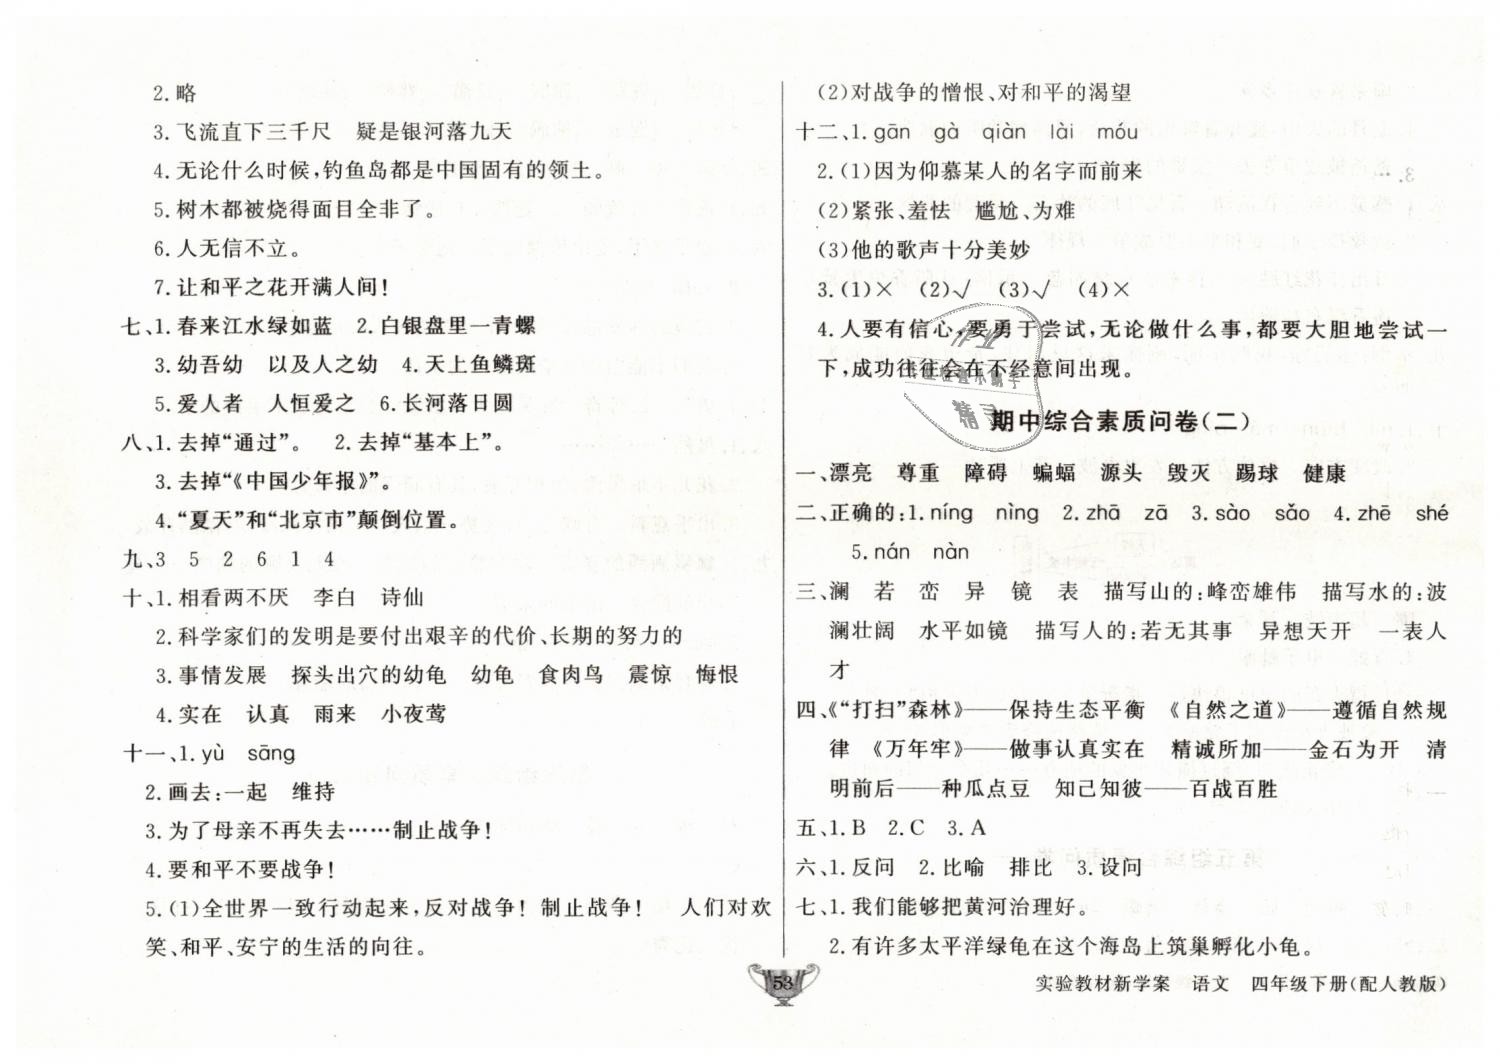 2.略
3.飞流直下三千尺　疑是银河落九天
4.无论什么时候,钓鱼岛都是中国固有的领土。
5.树木都被烧得面目全非了。
6.人无信不立。
7.让和平之花开满人间!
七、1.春来江水绿如蓝　2.白银盘里一青螺
3.幼吾幼　以及人之幼　4.天上鱼鳞斑
5.爱人者　人恒爱之　6.长河落日圆
八、1.去掉“通过”。　2.去掉“基本上”。
3.去掉“《中国少年报》”。
4.“夏天”和“北京市”颠倒位置。
九、3　5　2　6　1　4
十、1.相看两不厌　李白　诗仙
2.科学家们的发明是要付出艰辛的代价、长期的努力的
3.事情发展　探头出穴的幼龟　幼龟　食肉鸟　震惊　悔恨
4.实在　认真　雨来　小夜莺
十一、1.yù　sāng
2.画去:一起　维持
3.为了母亲不再失去……制止战争!
4.要和平不要战争!
5.(1)全世界一致行动起来,反对战争!　制止战争!　人们对欢
笑、和平、安宁的生活的向往。
(2)对战争的憎恨、对和平的渴望
十二、1.gān　gà　qiàn　lài　móu
2.(1)因为仰慕某人的名字而前来
(2)紧张、羞怯　尴尬、为难
(3)他的歌声十分美妙
3.(1)×　(2)√　(3)√　(4)×
4.人要有信心,要勇于尝试,无论做什么事,都要大胆地尝试一
下,成功往往会在不经意间出现。
期中综合素质问卷(二)
一、漂亮　尊重　障碍　蝙蝠　源头　毁灭　踢球　健康
二、正确的:1.níng　nìng　2.zhā　zā　3.sào　sǎo　4.zhē　shé
5.nán　nàn
三、澜　若　峦　异　镜　表　描写山的:峰峦雄伟　描写水的:波
澜壮阔　水平如镜　描写人的:若无其事　异想天开　一表人
才
四、《“打扫”森林》——保持生态平衡　《自然之道》——遵循自然规
律　《万年牢》——做事认真实在　精诚所加——金石为开　清
明前后——种瓜点豆　知己知彼——百战百胜
五、1.B　2.C　3.A
六、1.反问　2.比喻　排比　3.设问
七、1.我们能够把黄河治理好。
2.有许多太平洋绿龟在这个海岛上筑巢孵化小龟。
53
实验教材新学案　语文　四年级下册(配人教版)